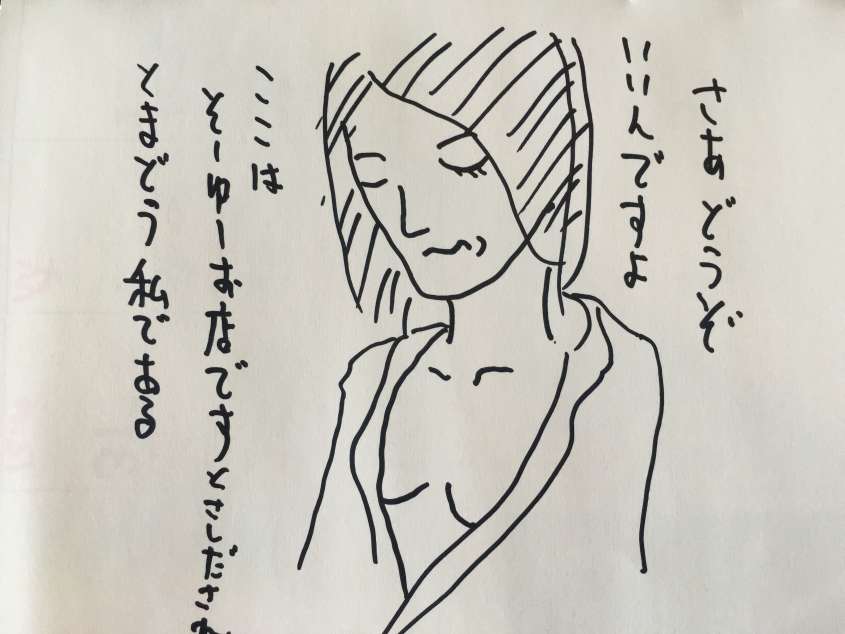 さあ どうぞ
いいんですよ
ここは
そーゆーお店ですとさしださ
とまどう私である